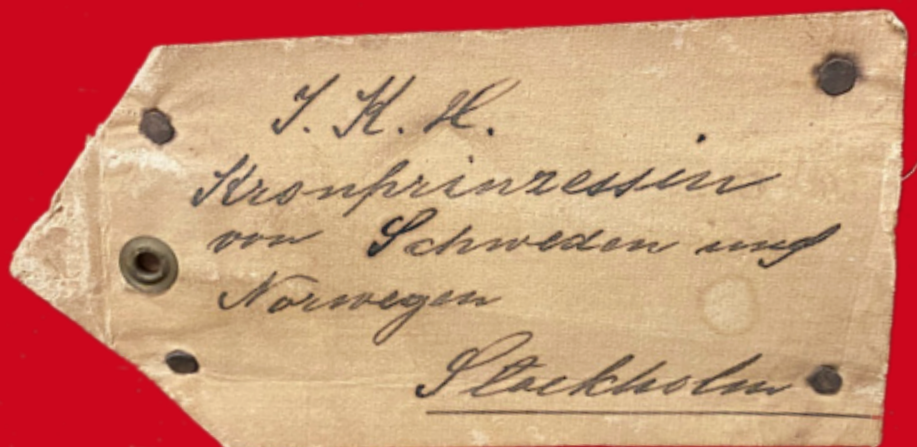 I. K. H.
Kronprinzessin
von Schweden und
Norwegen
Stockholm